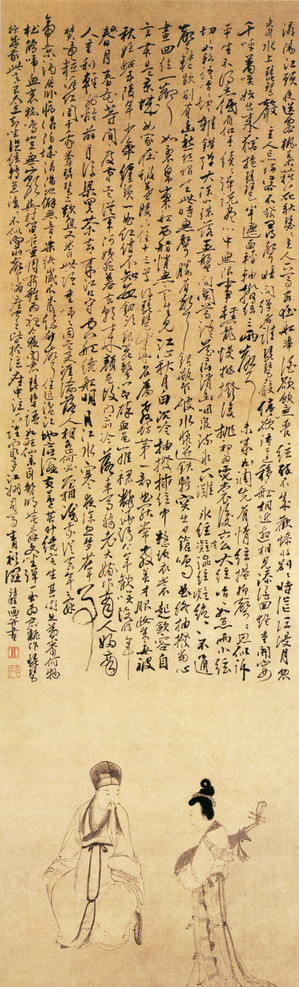 潯陽江頭夜送客楓葉荻花秋瑟瑟主人下馬客在船舉酒欲飲無管絃醉不成歡慘將別別時茫茫江浸月忽
聞水上琵琶聲主人忘歸客不發尋聲暗問彈者誰琵琶聲停欲語遲移船相近邀相見添酒回燈重開宴
千呼萬喚始出來猶抱琵琶半遮面轉軸撥絃三兩聲未成曲調先有情絃絃掩抑聲聲思似訴
平生不得志低眉信手續續彈說盡心中無限事輕攏慢撚撥復挑初為霓裳後六么大絃嘈嘈如急雨小絃
切切如私語嘈嘈切切錯雜彈大珠小珠落玉盤間關鶯語花底滑幽咽泉流水下灘水泉冷澀絃凝絕凝絕不通
聲暫歇別有幽愁暗恨生此時無聲勝有聲銀瓶乍破水漿迸鐵騎突出刀鎗鳴曲終抽撥當心
畫四絃一聲如裂帛東船西舫悄無言唯見江心秋月白沉吟抽撥插絃中整頓衣裳起斂容自
言本是京城女家在蝦蟆陵下住十三學得琵琶成名屬教坊第一部曲罷常教善才服妝成每被
秋娘妒五陵年少爭纏頭一曲紅綃不知數鈿頭銀篦擊節碎血色羅裙翻酒污今年歡笑復明年秋月
春風等閒度弟走從軍阿姨死暮去朝來顏色故門前冷落車馬稀老大嫁作商人婦商
人重利輕別離前月浮梁買茶去去來江口守空船繞船明月江水寒夜深忽夢少年事
夢啼粧淚紅闌干我聞琵琶已嘆息又聞此語重唧唧同是天涯淪落人相逢何必曾相識我從去年辭
帝京謫居臥病潯陽城潯陽地僻無音樂終歲不聞絲竹聲住近湓江地低濕黃蘆苦竹繞宅生其間旦暮聞何物
杜鵑啼血猿哀鳴豈無山歌與村笛嘔啞嘲哳難為聽今夜聞君琵琶語如聽仙樂耳暫明莫辭更坐彈一曲為君翻作琵琶
行感我此言良久立却坐促絃絃轉急淒淒不似向前聲滿座重聞皆掩泣座中泣下誰最多江州司馬青衫濕 清狂畫并書